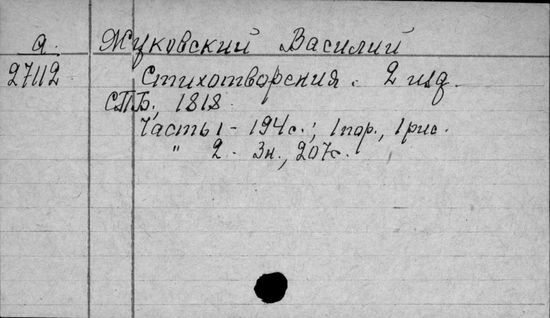 а. Жуковский Василий
27112 Стихотворения. 2 изд.
СПБ, 1818.
Часть 1 - 194 с.; 1 пор., 1 рис.
" 2 - 3н., 207с.